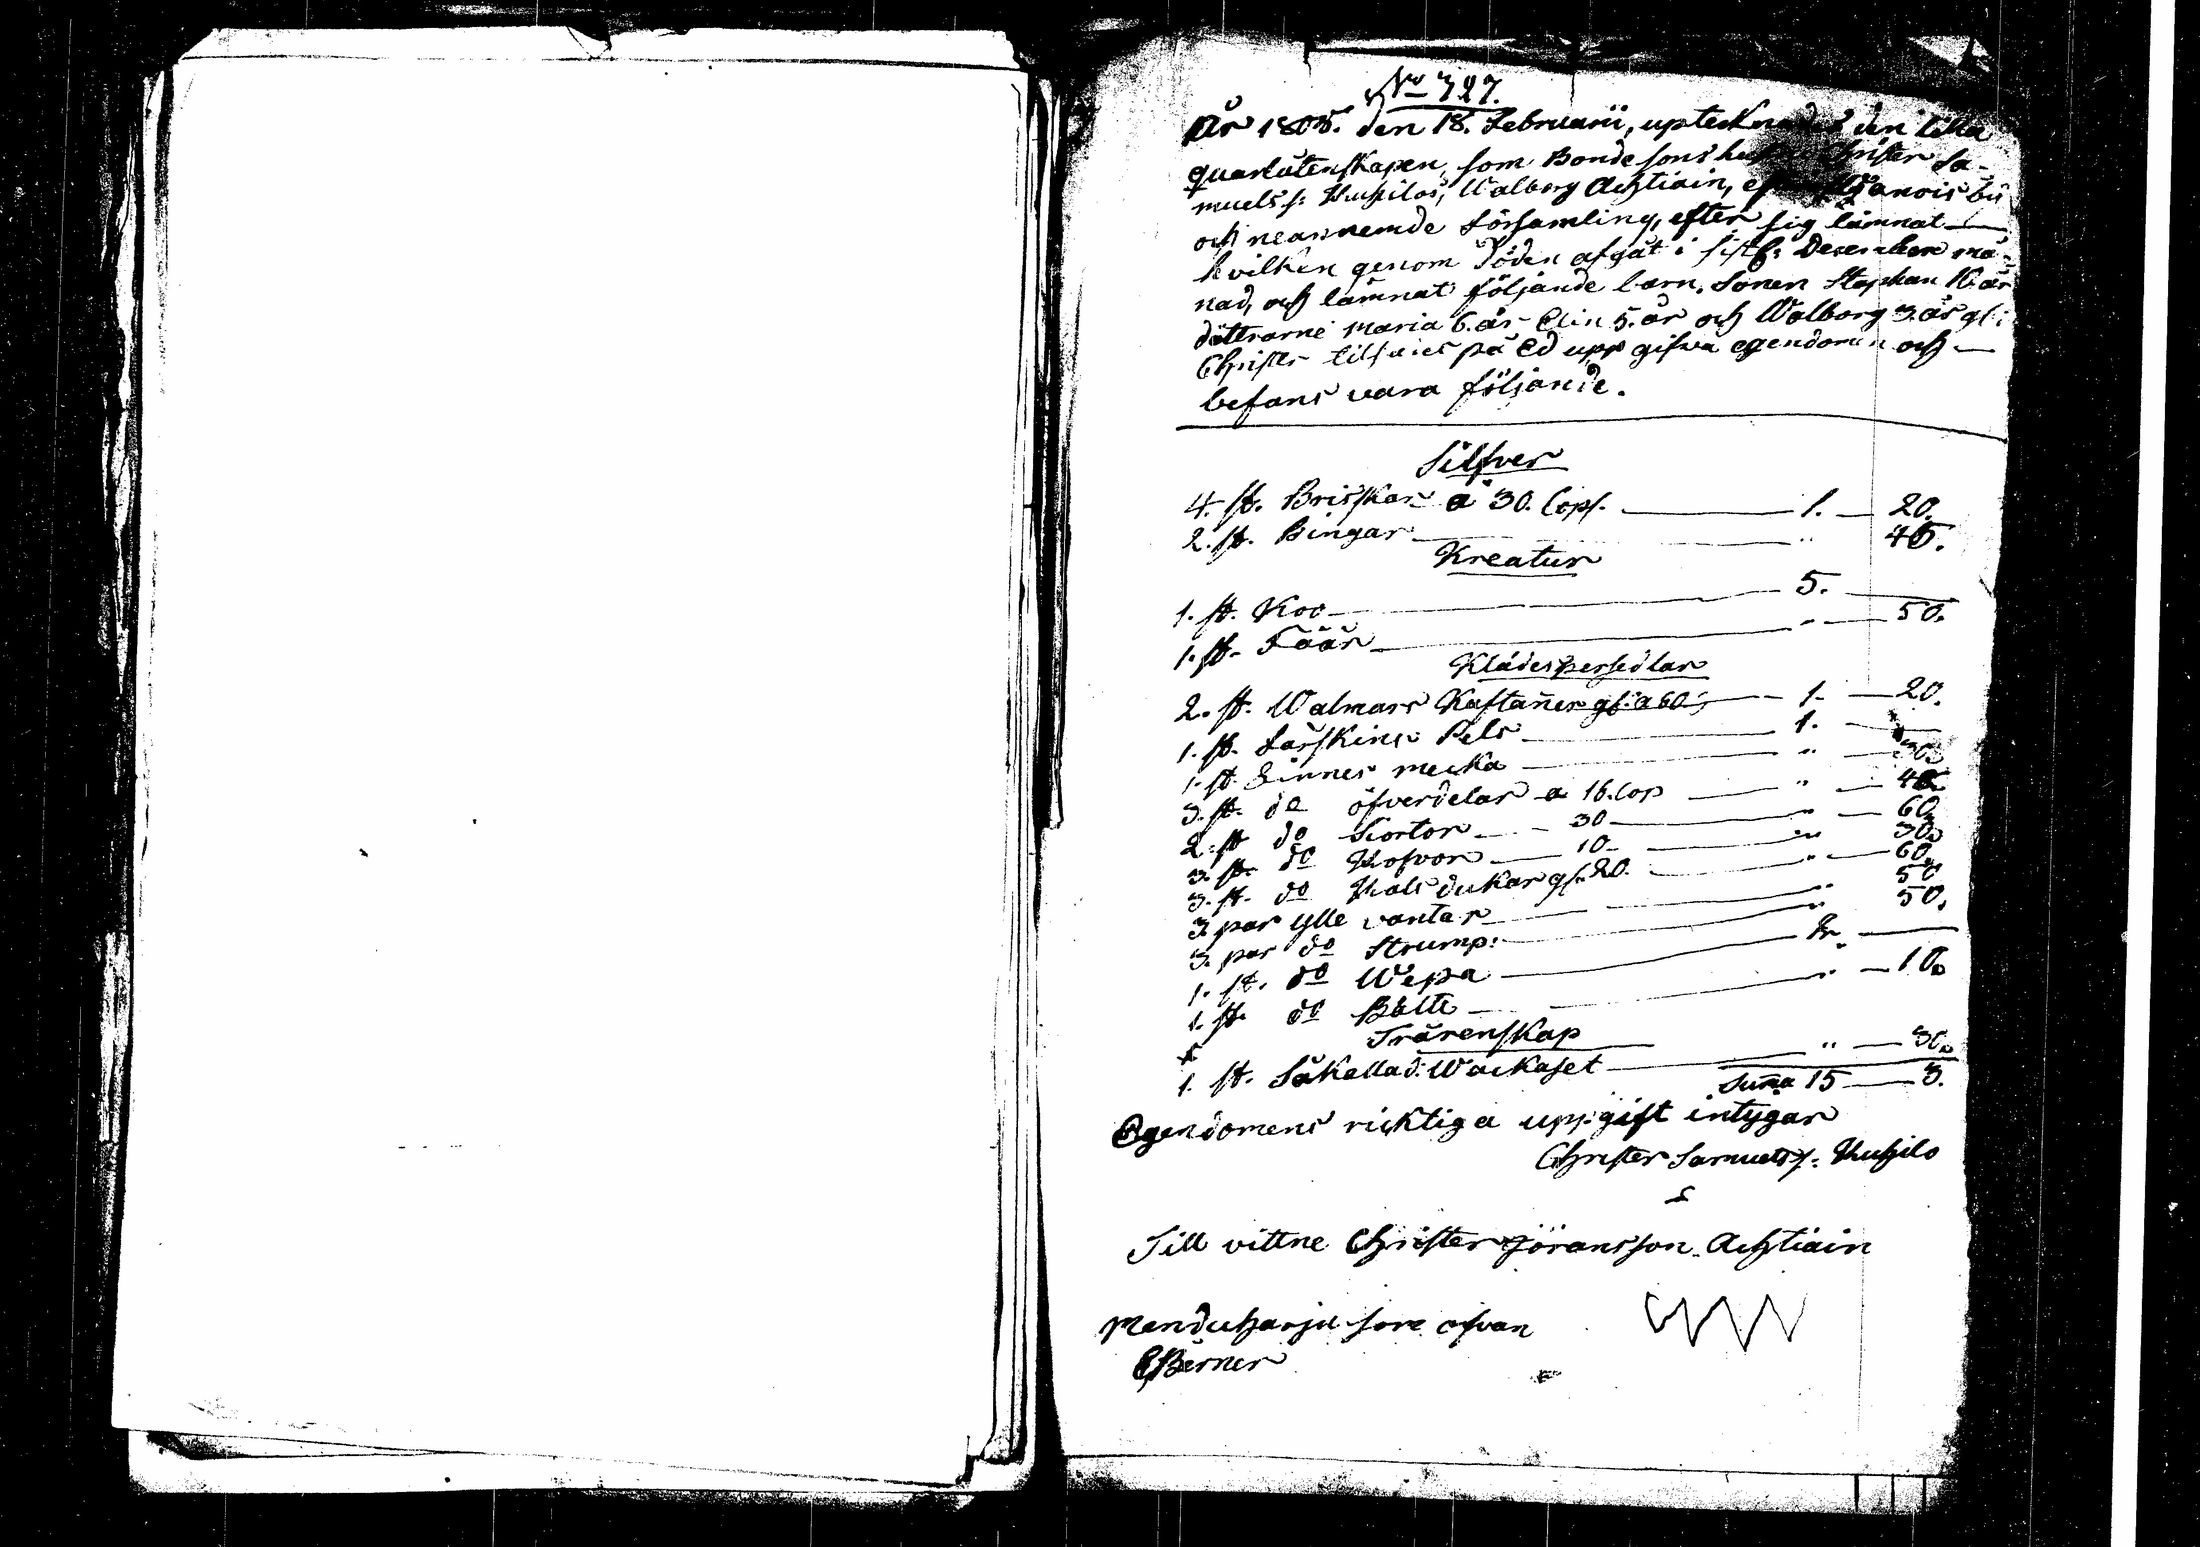 No 327.
År 1805. den 18. Februarii, uptecknades den lilla
quarlåtenskapen, som Bondesons hustru Christer Sa-
muelss: Huhilos, Walborg Achtiain, från Hanois by
och neannemde Församling, efter sig lämnat
hvilken genom döden afgåt i sistl: December må-
nad, och lämnat följande barn. Sonen Staphan 16 år
döttrarne Maria 6. år Elin 5. år och Walborg 3. år gl:
Christer tilsades på Ed uppgifva egendomen och
befans vara följande.
Silfver
4. st. Briskar a 30. Cops. 1. 20.
2. st. Bingar " 45.
Kreatur
1. st. Koo 5.
1. st. Fåår " 50.
Klädespersedlar
2. st. Walmars Kaftaner gl: a 60: 1. 20.
1. st. Fårskins Pels 1.
1. st. Linnes mecko " 30.
3. st. do öfverdelar a 16. Cop " 48.
2. st do Skortor 30 " 60.
3. st. do Hofvor 10 " 30.
3. st. do Halsdukar gl. 20. " 60.
3. par ylle vantar " 50
3. par do Strump: " 50.
1. st. do Wepa 2.
1. st. do Bälte " 10.
Trärenskap
1. st. Såkallad: Wackaset " 30.
Suma 15 3.
Egendomens ricktiga uppgift intygar
Christer Samuelss: Huhilo
Till vittne Christer Jöransson Achtiain
Manduharju som ofvan
EBerner